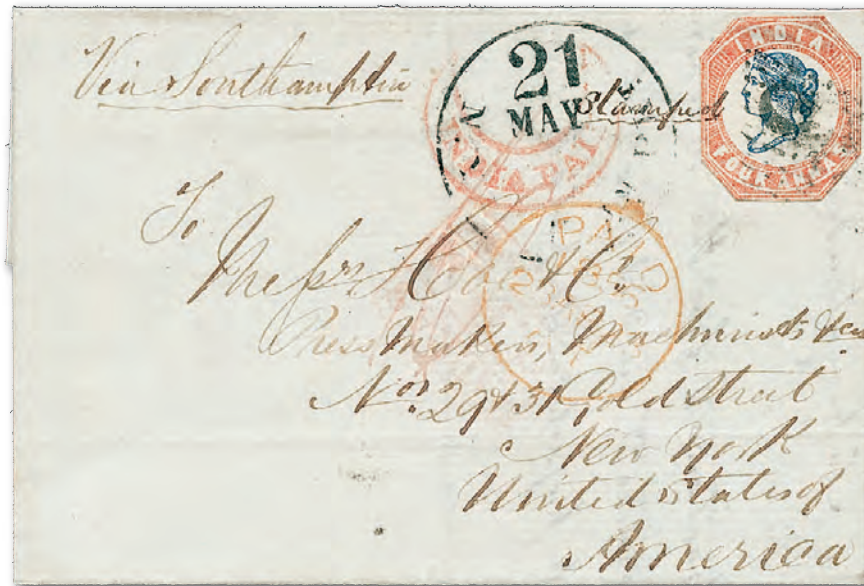 Via Southampton
Stamped
21
MAY
INDIA PAI
INDIA
FOUR ANNAS
PAID
To
Messrs Hoe & Co.
Press Makers, Machinists &ca
Nos. 29 & 31 Gold Street
New York
United States of
America